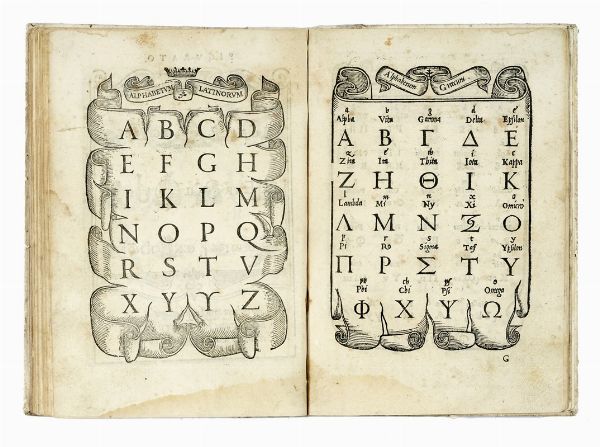 ALPHABETVM LATINORVM
A B C D
E F G H
I K L M
N O P Q
R S T V
X Y ϒ Z
Alphabetum Græcum
a b g d e
Alpha Vita Gamma Delta Epsilon
Α Β Γ Δ Ε
z i th i c
Zita Ita Thita Iota Kappa
Ζ Η Θ Ι Κ
l m n x o
Lambda Mi Ny Xi Omicro
Λ Μ Ν Ξ Ο
p r s t y
Pi Ro Sigma Taf Ypsilon
Π Ρ Σ Τ Υ
ph ch ps o
Phi Chi Psi Omega
Φ Χ Ψ Ω
G